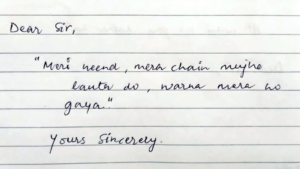 Dear Sir,
"Meri neend, mera chain mujhe
lauta do, warna mera ho
gaya."
Yours Sincerely.